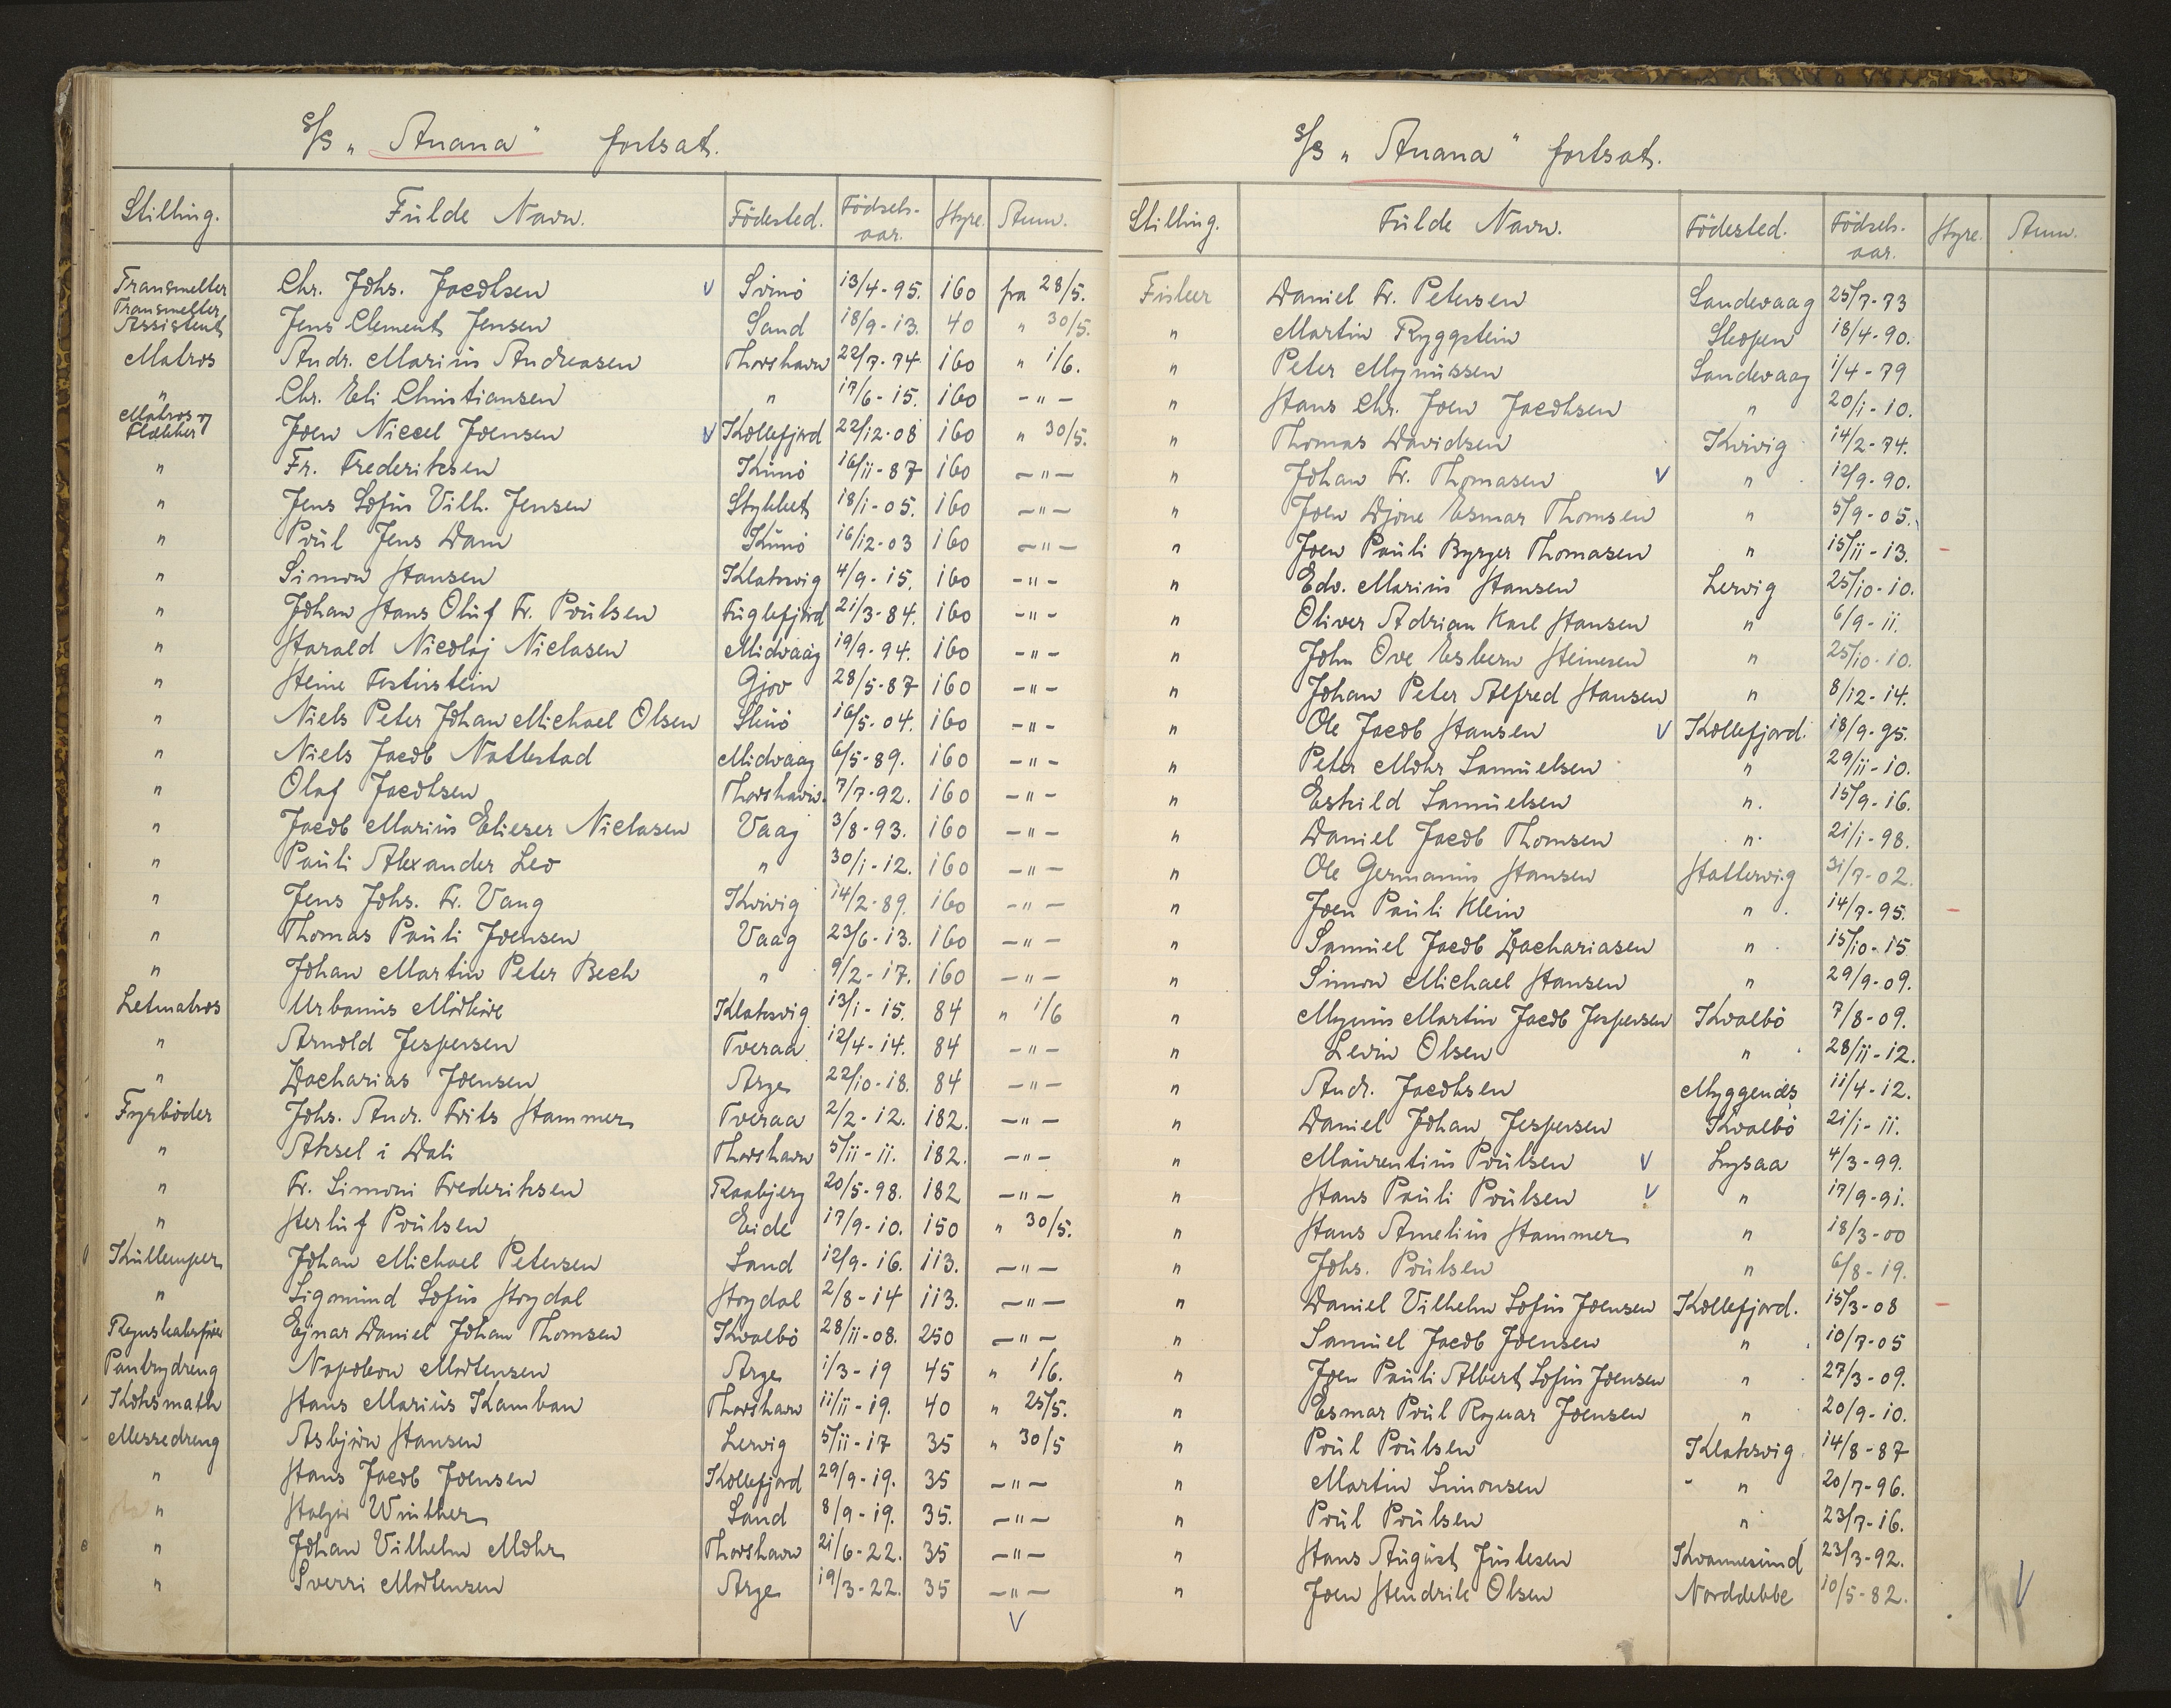 S/S „Anana" fortsat.
Stilling. Fulde Navn. Födested. Födsels-aar. Hyre. Anm.
Transmelter Chr. Johs. Jacobsen v Svinö 13/4-95. 160 fra 28/5.
Transmelter Assistent Jens Clement Jensen Sand 18/9-13. 40 " 30/5.
Matros Andr. Marius Andreasen Thorshavn 22/7-74 160 " 1/6.
" Chr. Eli Christiansen " 17/6-15. 160 -"-
Matros og Flækker Joen Niccel Joensen v Kollefjord 22/12-08 160 " 30/5.
" Fr. Frederiksen Kunö 16/11-87 160 -"-
" Jens Sofus Vilh. Jensen Stykket 18/1-05. 160 -"-
" Poul Jens Dam Kunö 16/12-03 160 -"-
" Simon Hansen Klaksvig 4/9-15. 160 -"-
" Johan Hans Oluf Fr. Poulsen Fuglefjord 21/3-84. 160 -"-
" Harald Nicolaj Niclasen Midvaag 19/9-94. 160 -"-
" Heine Festirstein Gjov 28/5-87 160 -"-
" Niels Peter Johan Michael Olsen Skuö 16/5-04. 160 -"-
" Niels Jacob Nattestad Midvaag 6/5-89. 160 -"-
" Olaf Jacobsen Thorshavn. 7/7-92. 160 -"-
" Jacob Marius Elieser Niclasen Vaag 3/8-93. 160 -"-
" Pauli Alexander Leo " 30/1-12. 160 -"-
" Jens Johs. Fr. Vang Kvivig 14/2-89. 160 -"-
" Thomas Pauli Joensen Vaag 23/6-13. 160 -"-
" Johan Martin Peter Bech " 9/2-17. 160 -"-
Letmatros Urbanus Mörköre Klaksvig 13/1-15. 84 " 1/6
" Arnold Jespersen Tveraa 12/4-14. 84 -"-
" Zacharias Joensen Arge 22/10-18. 84 -"-
Fyrböder Johs. Andr. Frits Hammer Tveraa 2/2-12. 182. -"-
" Aksel i Dali Thorshavn 5/11-11. 182. -"-
" Fr. Simoni Frederiksen Raabjerg 20/5-98. 182 -"-
" Herluf Poulsen Eide 17/9-10. 150 " 30/5.
Kullemper Johan Michael Petersen Sand 12/9-16. 113. -"-
" Sigmund Sofus Hoydal Hoydal 2/8-14 113. -"-
Ejnar Daniel Johan Thomsen Kvalbö 28/11-08. 250 -"-
Pantrydreng Napoleon Mortensen Arge 1/3-19 45 " 1/6.
Koksmath Hans Marius Kamban Thorshavn 11/11-19. 40 " 25/5.
Messedreng Asbjörn Hansen Lervig 5/11-17 35 " 30/5
" Hans Jacob Joensen Kollefjord 29/9-19. 35 -"-
" Holgir Winther Sand 8/9-19. 35. -"-
" Johan Vilhelm Mohr Thorshavn 21/6-22. 35 -"-
" Sverri Mortensen Arge 19/3-22. 35 -"-
v
S/S „Anana" fortsat.
Stilling. Fulde Navn. Födested. Födsels-aar. Hyre. Anm.
Fisker Daniel Fr. Petersen Sandevaag 25/7-73
" Martin Ryggstein Skopen 18/4-90.
" Peter Magnussen Sandevaag 1/4-79
" Hans Chr. Joen Jacobsen " 20/1-10.
" Thomas Davidsen Kvivig 14/2-74.
" Johan Fr. Thomasen v " 12/9-90.
" Joen Djone Esmar Thomsen " 5/9-05.
" Joen Pauli Byrger Thomasen " 15/11-13. -
" Edv. Marius Hansen Lervig 25/10-10.
" Oliver Adrian Karl Hansen " 6/9-11.
" John Ove Esbern Heinesen " 25/10-10.
" Johan Peter Alfred Hansen " 8/12-14.
" Ole Jacob Hansen v Kollefjord. 18/9-95.
" Peter Mohr Samuelsen " 29/11-10.
" Eskild Samuelsen ". 15/9-16.
" Daniel Jacob Thomsen " 21/1-98.
" Ole Germanus Hansen Hattervig 31/7-02.
" Joen Pauli Klein " 14/7-95. -
" Samuel Jacob Zachariasen " 15/10-15
" Simon Michael Hansen " 29/9-09.
" Magnus Martin Jacob Jespersen Kvalbö 7/8-09.
" Levin Olsen " 28/11-12.
" Andr. Jacobsen Myggenæs 11/4-12.
" Daniel Johan Jespersen Kvalbö 21/1-11.
" Maurentius Poulsen v Lysaa 4/3-99.
" Hans Pauli Poulsen v " 17/9-91.
" Hans Amelius Hammer " 18/3-00
" Johs. Poulsen " 6/8-19.
" Daniel Vilhelm Sofus Joensen Kollefjord. 15/3-08 -
" Samuel Jacob Joensen " 10/7-05
" Joen Pauli Albert Sofus Joensen " 27/3-09.
" Esmar Poul Ragnar Joensen " 20/9-10.
" Poul Poulsen Klaksvig 14/8-87
" Martin Simonsen " 20/7-96.
" Poul Poulsen " 23/7-16.
" Hans August Juslesen Kvannesund 23/3-92.
" Joen Hendrik Olsen Norddebbe 10/5-82. v